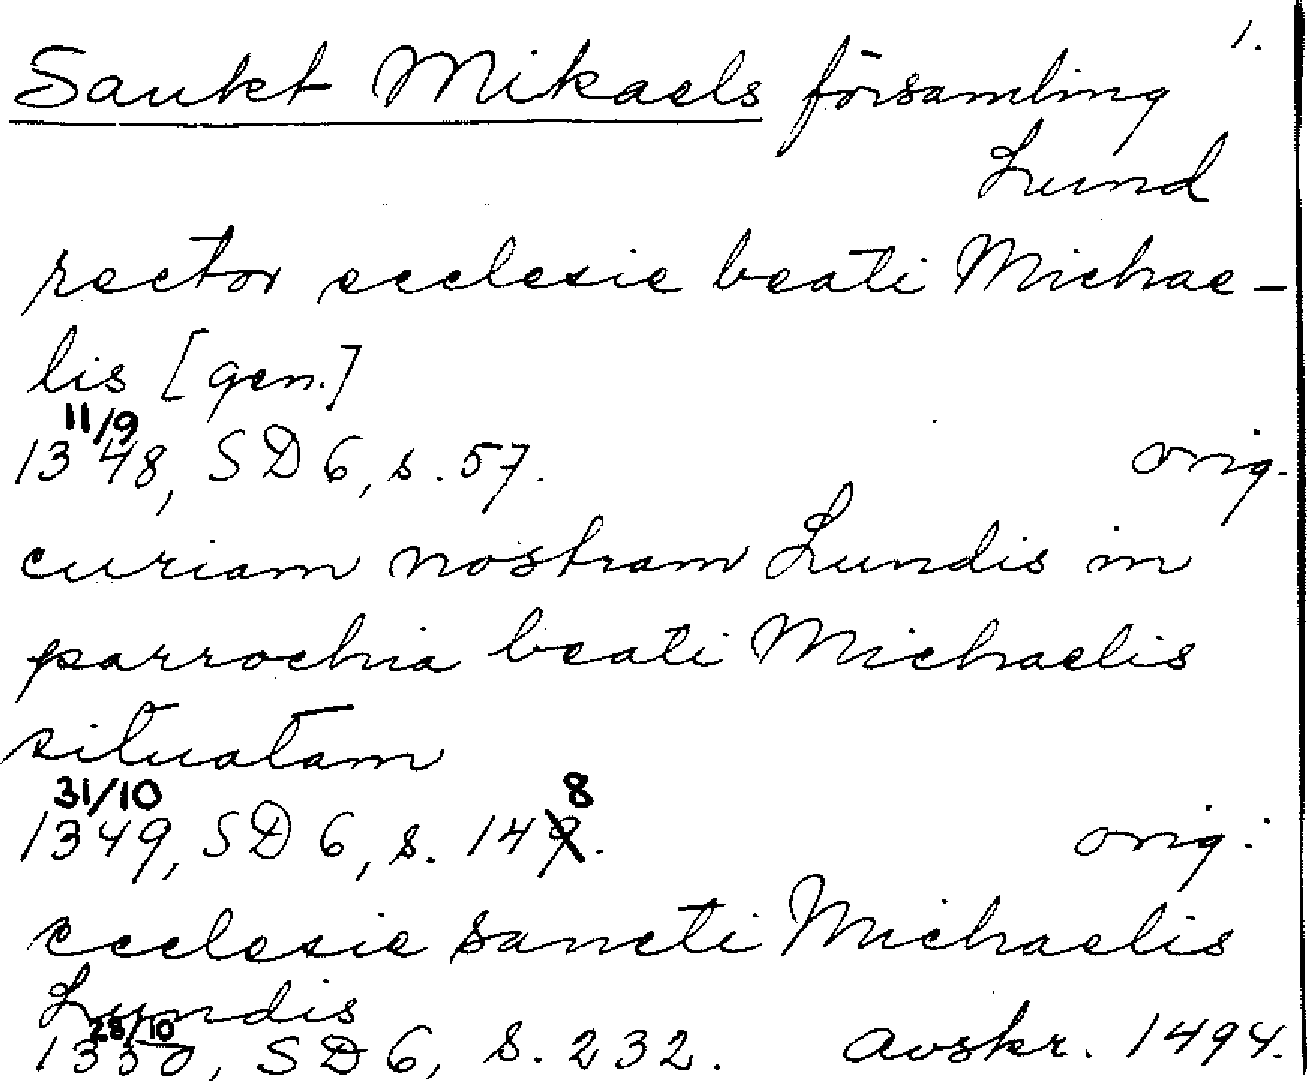 1.
Sankt Mikaels församling
Lund
rector ecclesie beati Michae-
lis [gen.]
11/9
1348, SD 6, s. 57. orig.
curiam nostram Lundis in
parrochia beati Michaelis
situatam
31/10 8
1349, SD 6, s. 149. orig.
ecclesie sancti Michaelis
Lundis
28/10
1350, SD 6, s. 232. avskr. 1494.